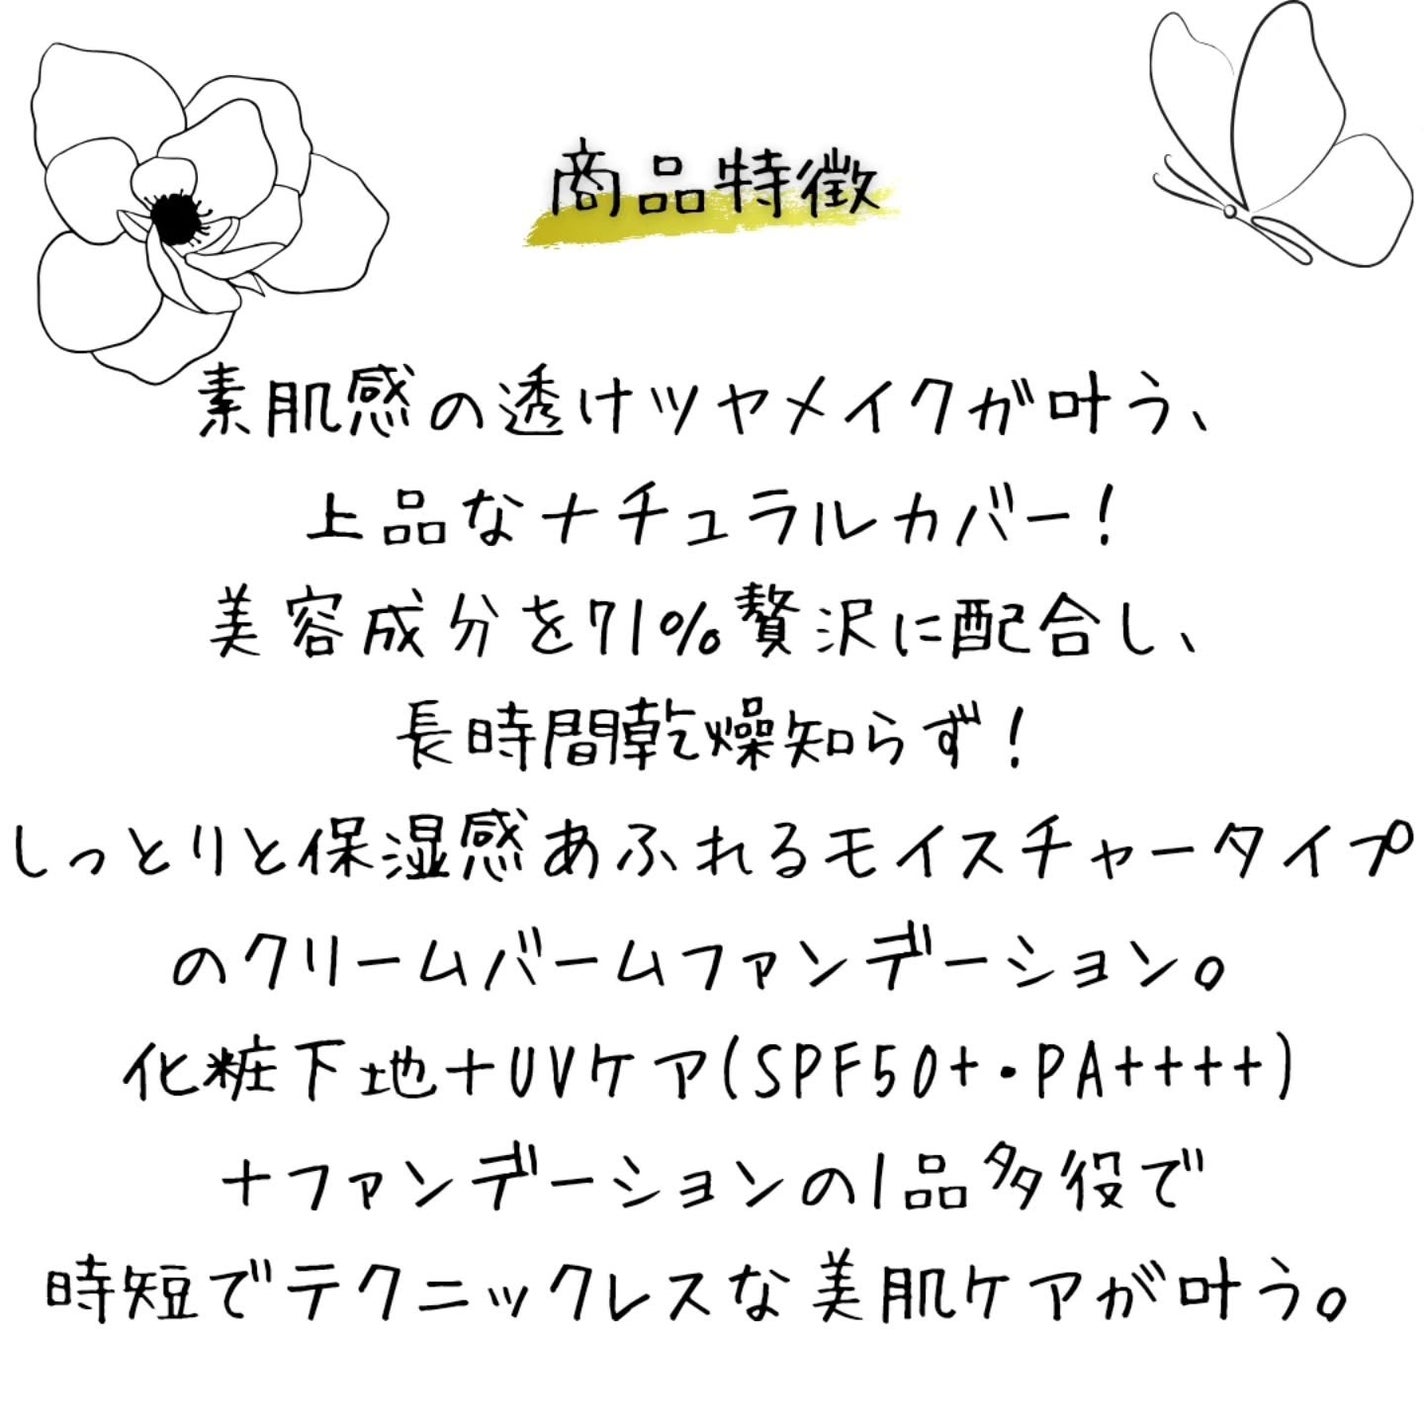 商品特徴
素肌感の透けツヤメイクが叶う、
上品なナチュラルカバー！
美容成分を71%贅沢に配合し、
長時間乾燥知らず！
しっとりと保湿感あふれるモイスチャータイプ
のクリームバームファンデーション。
化粧下地+UVケア(SPF50+・PA++++)
+ファンデーションの1品多役で
時短でテクニックレスな美肌ケアが叶う。